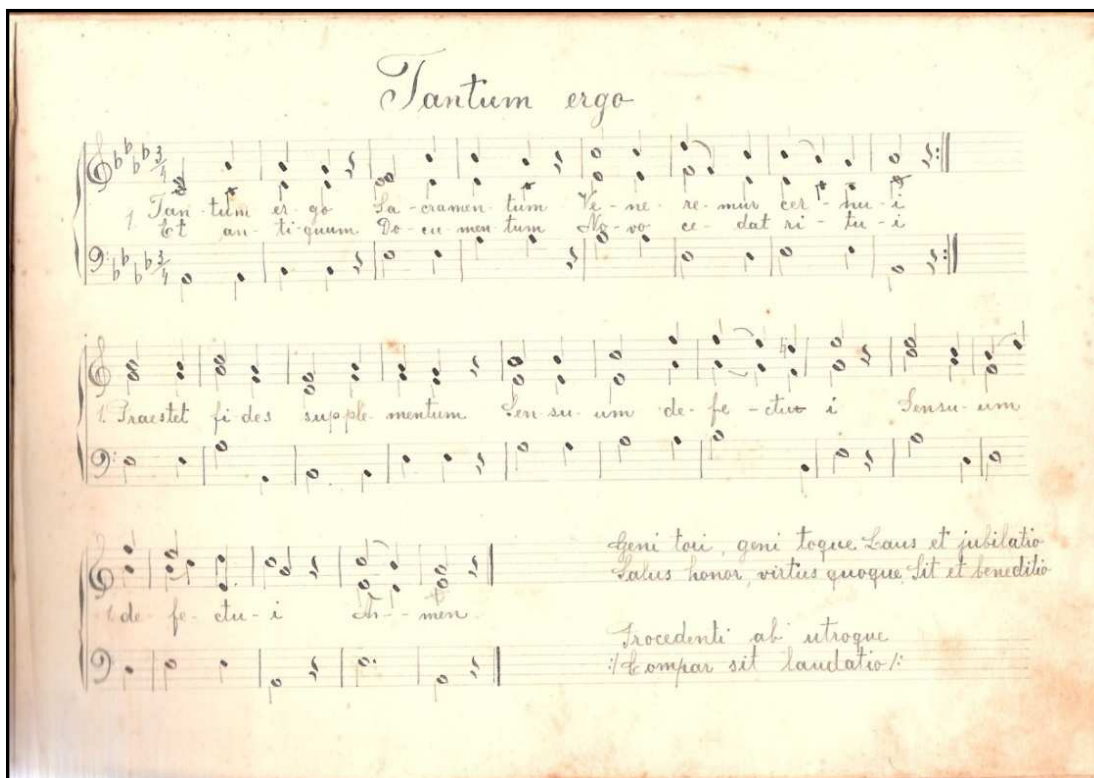 Tantum ergo
3/4
1. Tan-tum er-go Sa-cramen-tum Ve-ne-re-mur cer-nu-i
1. Et an-ti-quum Do-cu-men-tum No-vo ce-dat ri-tu-i
3/4
1. Praestet fi-des supple-mentum Sen-su-um de-fe-ctu i Sensu-um
1. de-fe-ctu-i A--men.
Geni tori, geni toque Laus et jubilatio
Salus honor, virtus quoque, Sit et beneditio
Procedenti ab utroque
:/Compar sit laudatio/: